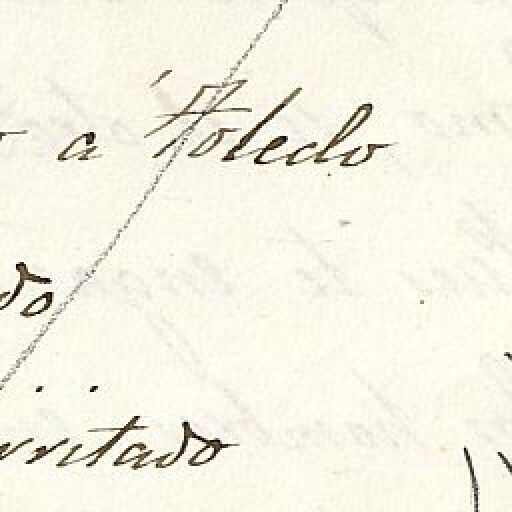 a Toledo
do
rritado